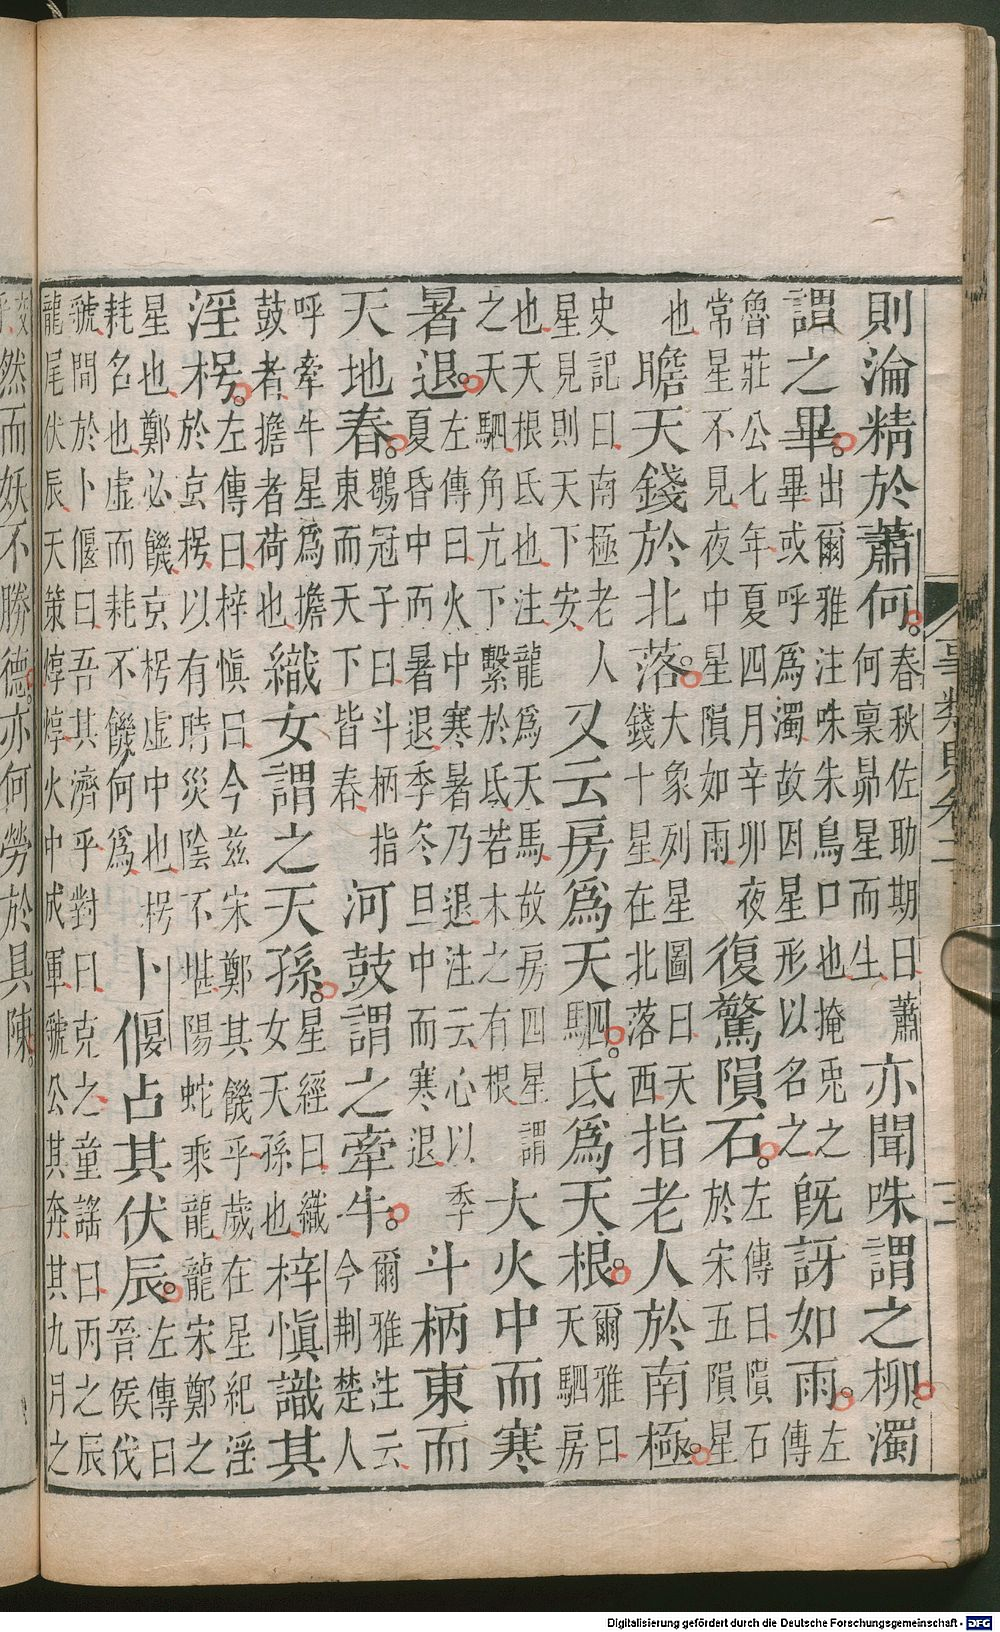 事類賦卷二　三
則淪精於蕭何。
春秋佐助期曰蕭
何稟昴星而生
亦聞咮謂之柳。濁
謂之畢。
出爾雅注咮朱鳥口也掩兎之
畢或呼爲濁故因星形以名之
既訝如雨。
左
傳
魯莊公七年夏四月辛卯夜
常星不見夜中星隕如雨
復驚隕石。
左傳曰隕石
於宋五隕星
也
瞻天錢於北落。
大象列星圖曰天
錢十星在北落西
指老人於南極。
史記曰南極老人
星見則天下安
又云房爲天駟。氐爲天根。
爾雅曰
天駟房
也天根氐也注龍爲天馬故房四星謂
之天駟角亢下繫於氐若木之有根
大火中而寒
暑退。
左傳曰火中寒暑乃退注云心以季
夏昏中而暑退季冬旦中而寒退
斗柄東而
天地春。
鶡冠子曰斗柄指
東而天下皆春
河鼓謂之牽牛。
爾雅注云
今荆楚人
呼牽牛星爲擔
鼓者擔者荷也
織女謂之天孫。
星經曰織
女天孫也
梓愼識其
淫枵。
左傳曰梓愼曰今兹宋鄭其饑乎歲在星紀淫
於玄枵以有時災陰不堪陽蛇乘龍龍宋鄭之
星也鄭必饑玄枵虛中也枵
耗名也虛而耗不饑何爲
卜偃占其伏辰。
左傳曰
晉侯伐
虢問於卜偃曰吾其濟乎對曰克之童謠曰丙之辰
龍尾伏辰天策焞焞火中成軍虢公其奔其九月之
然而妖不勝德。亦何勞於具陳。
Digitalisierung gefördert durch die Deutsche Forschungsgemeinschaft - DFG